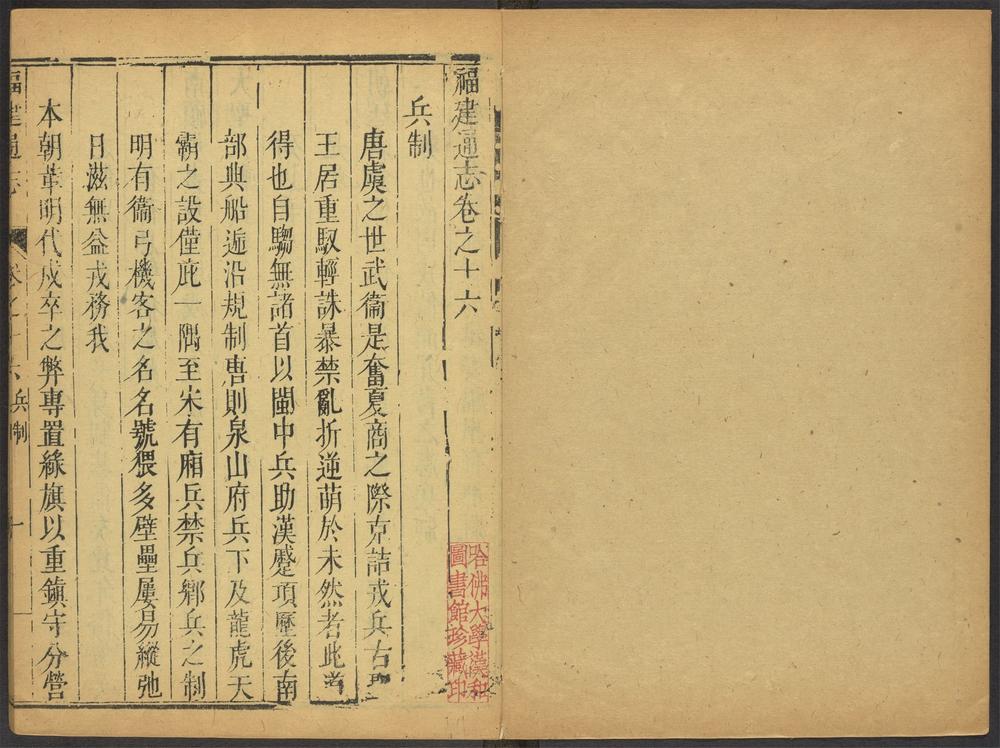 福建通志卷之十六
兵制
唐虞之世武衞是奮夏商之際克詰戎兵古聖
王居重馭輕誅暴禁亂折逆萌於未然者此道
得也自騶無諸首以閩中兵助漢蹙項壓後南
部典船遞沿規制唐則泉山府兵下及龍虎天
霸之設僅庇一隅至宋有廂兵禁兵鄉兵之制
明有衞弓機客之名名號猥多壁壘屢易縱弛
日滋無益戎務我
本朝革明代戍卒之弊專置綠旗以重鎮守分營
福建通志 卷之十六 兵制
哈佛大學漢和
圖書館珍藏印